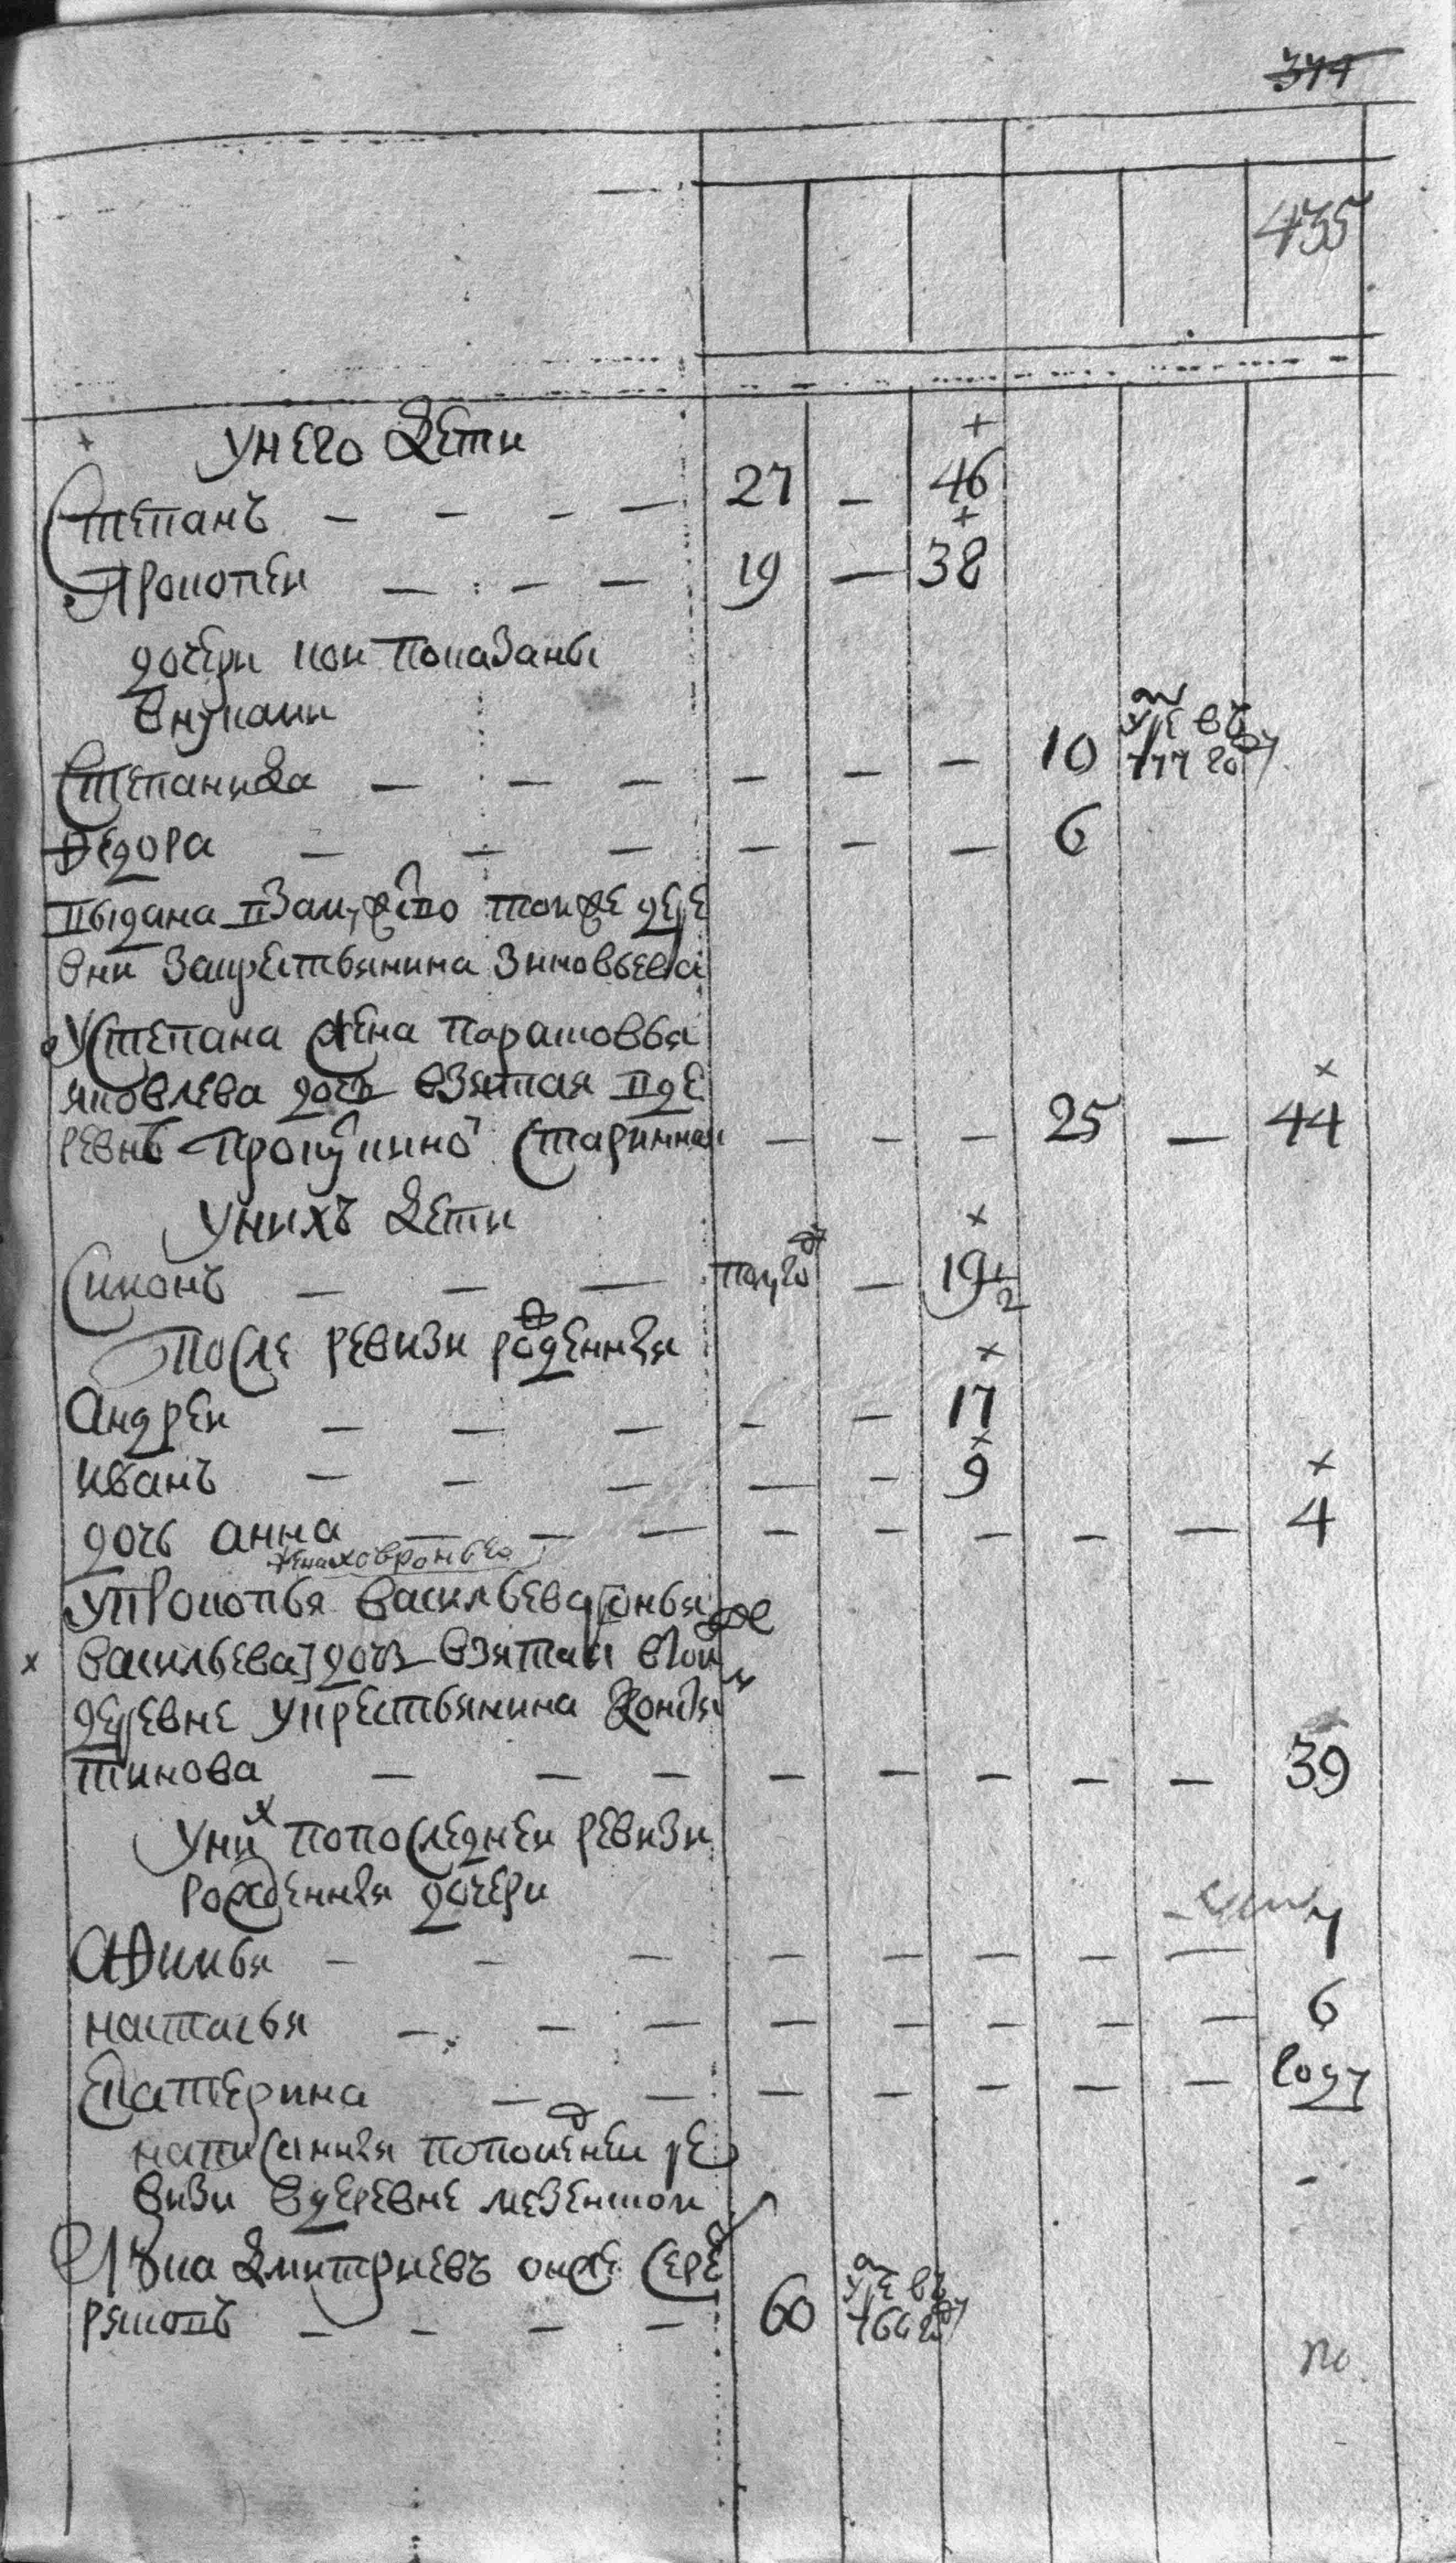 374
435
+ +
у него дети
Степанъ — — — — 27 — 46
+
Прокопеи — — — 19 — 38
дочери кои показаны
внуками
Степанида — — — — — — 10 умре въ 777 году
Федора — — — — — — 6
выдана взамужство тоиже дере
вни за крестьянина Зиновьева
У Степана жена Парасковья
яковлева дочь взятая в де
ревнѣ старинная — — — 25 — 44
+
У нихъ дети
Симонъ — — — полугоду — 19 1/2
После ревизи рожденныя
+
Андреи — — — — — 17
+
Иванъ — — — — — 9
+
дочь анна — — — — — — — — 4
жена ховронья ево
У Прокопья васильева
васильева] дочь взятая втои же
деревне у крестьянина
тинова — — — — — — — — 39
У них попоследнеи ревизи
рожденныя дочери
Афимья — — — — — — — — 7
настасья — — — — — — — — 6
Екатерина — — — — — — — году
написанныя попоследнеи ре
визи вдеревне
Лука Дмитриевъ онже Сере
ряковъ — — — — 60 умре въ 766 году
по